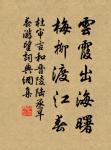 雲霞出海曙
梅柳渡江春
杜審言和晉陵陸丞早
春游望詞典網集